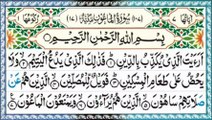 اٰيَاتُهَا ٧ (١٠٧) سُوْرَةُ الْمَاعُوْنِ مَكِّيَّةٌ (١٧) رُكُوْعُهَا
بِسْمِ اللّٰهِ الرَّحْمٰنِ الرَّحِيْمِ
اَرَءَيْتَ الَّذِيْ يُكَذِّبُ بِالدِّيْنِ فَذٰلِكَ الَّذِيْ يَدُعُّ الْيَتِيْمَ وَلَا
يَحُضُّ عَلٰى طَعَامِ الْمِسْكِيْنِ فَوَيْلٌ لِّلْمُصَلِّيْنَ الَّذِيْنَ هُمْ عَنْ
صَلَاتِهِمْ سَاهُوْنَ الَّذِيْنَ هُمْ يُرَآءُوْنَ وَيَمْنَعُوْنَ الْمَاعُوْنَ